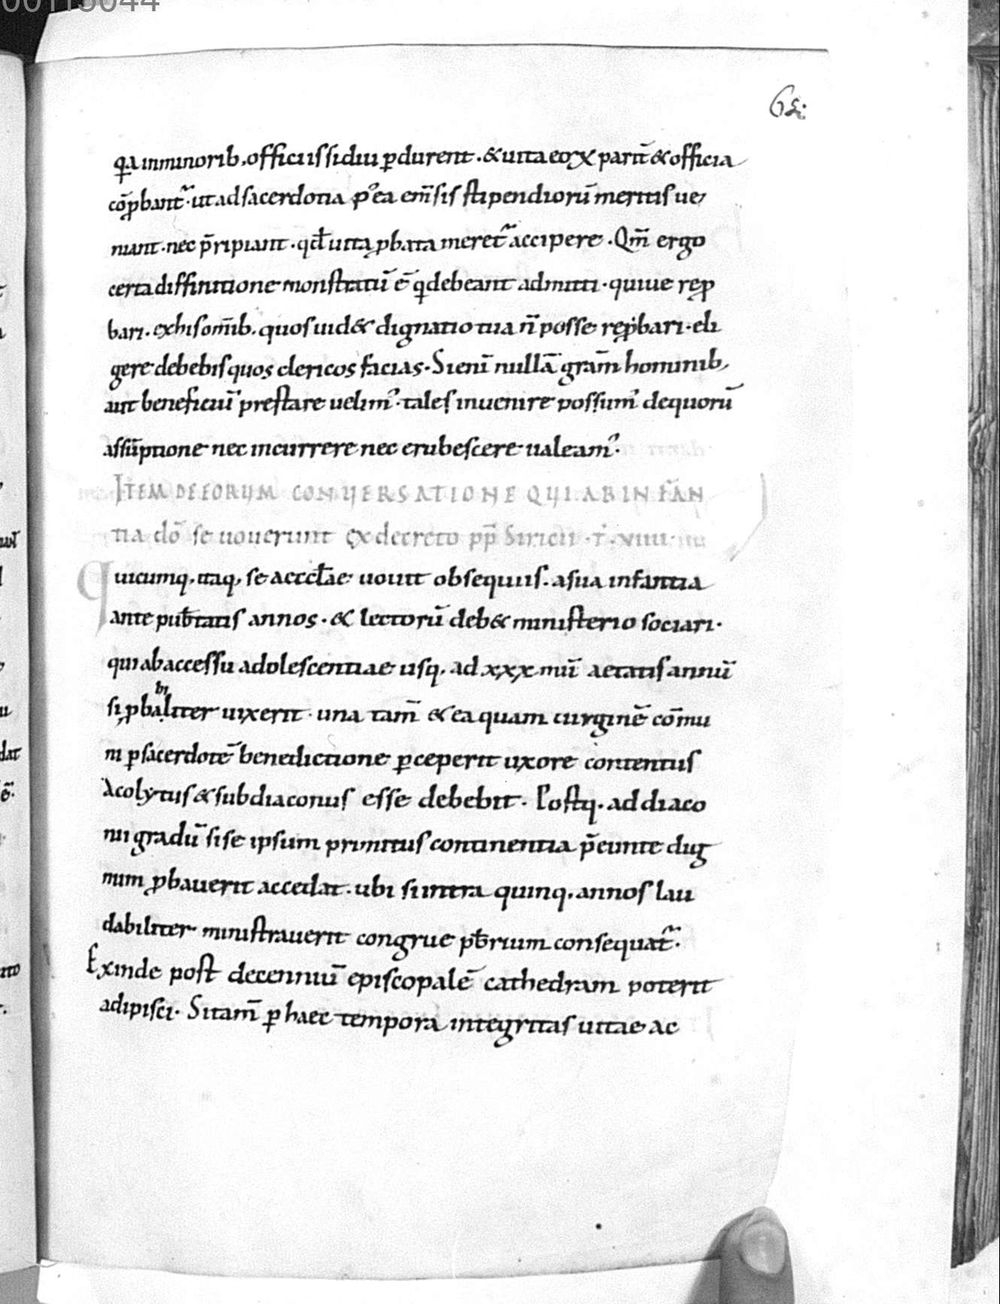 00113044
65
qa inminorib, officiis si diu pdurent · & uita eoꝝ parit̄ & officia
cōpbant᷑ · ut ad sacerdotia p'ea em̄sis stipendiorū meritis ue
niant · nec p̄ripiant · qd̄ uita pbata meret᷑ accipere · Qm̄ ergo
certa diffinitione monstratū ē q debeant admitti · quiue rep
bari · ex his om̄ib, quos uid& dignatio tua ñ posse rep̱bari · eli
gere debebis quos clericos facias · Si enī nullā gr̄am hominib,
aut beneficiū prestare uelim᾽ · tales inuenire possum᾽ de quorū
assūptione nec incurrere nec erubescere ualeam᾽ ·
ITEM DE EORUM CONUERSATIONE QUI AB INFAN
tia dō se uouerunt ex decreto pp̄ Siricii · t̄ · viiii ·
Quicumq, itaq, se aeccl̄ae uouit obsequiis · a sua infantia
ante pub̄tatis annos · & lectorū deb& ministerio sociari ·
qui ab accessu adolescentiae usq, ad xxx mū aetatis annū
si pbabiliter uixerit · una tam̄ & ea quam uirginē cōmu
ni p sacerdotē benedictione pceperit uxore contentus
Acolytus & subdiaconus esse debebit · Postq · ad diaco
nii gradū si se ipsum primitus continentia p̄eunte dig
num pbauerit accedat · ubi si intra quinq, annos lau
dabiliter ministrauerit congrue pb̄rium consequat᷑ ·
Exinde post decenniū episcopalē cathedram poterit
adipisci · Si tam̄ p haec tempora integritas uitae ac